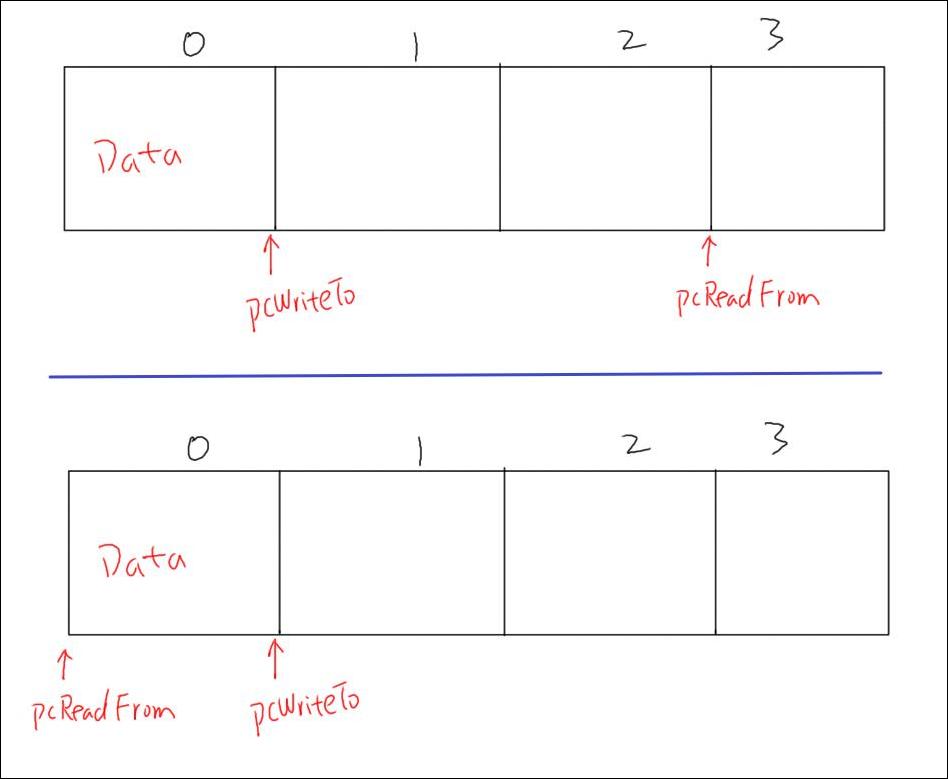 0 1 2 3
Data
pcWriteTo pcReadFrom
0 1 2 3
Data
pcReadFrom pcWriteTo